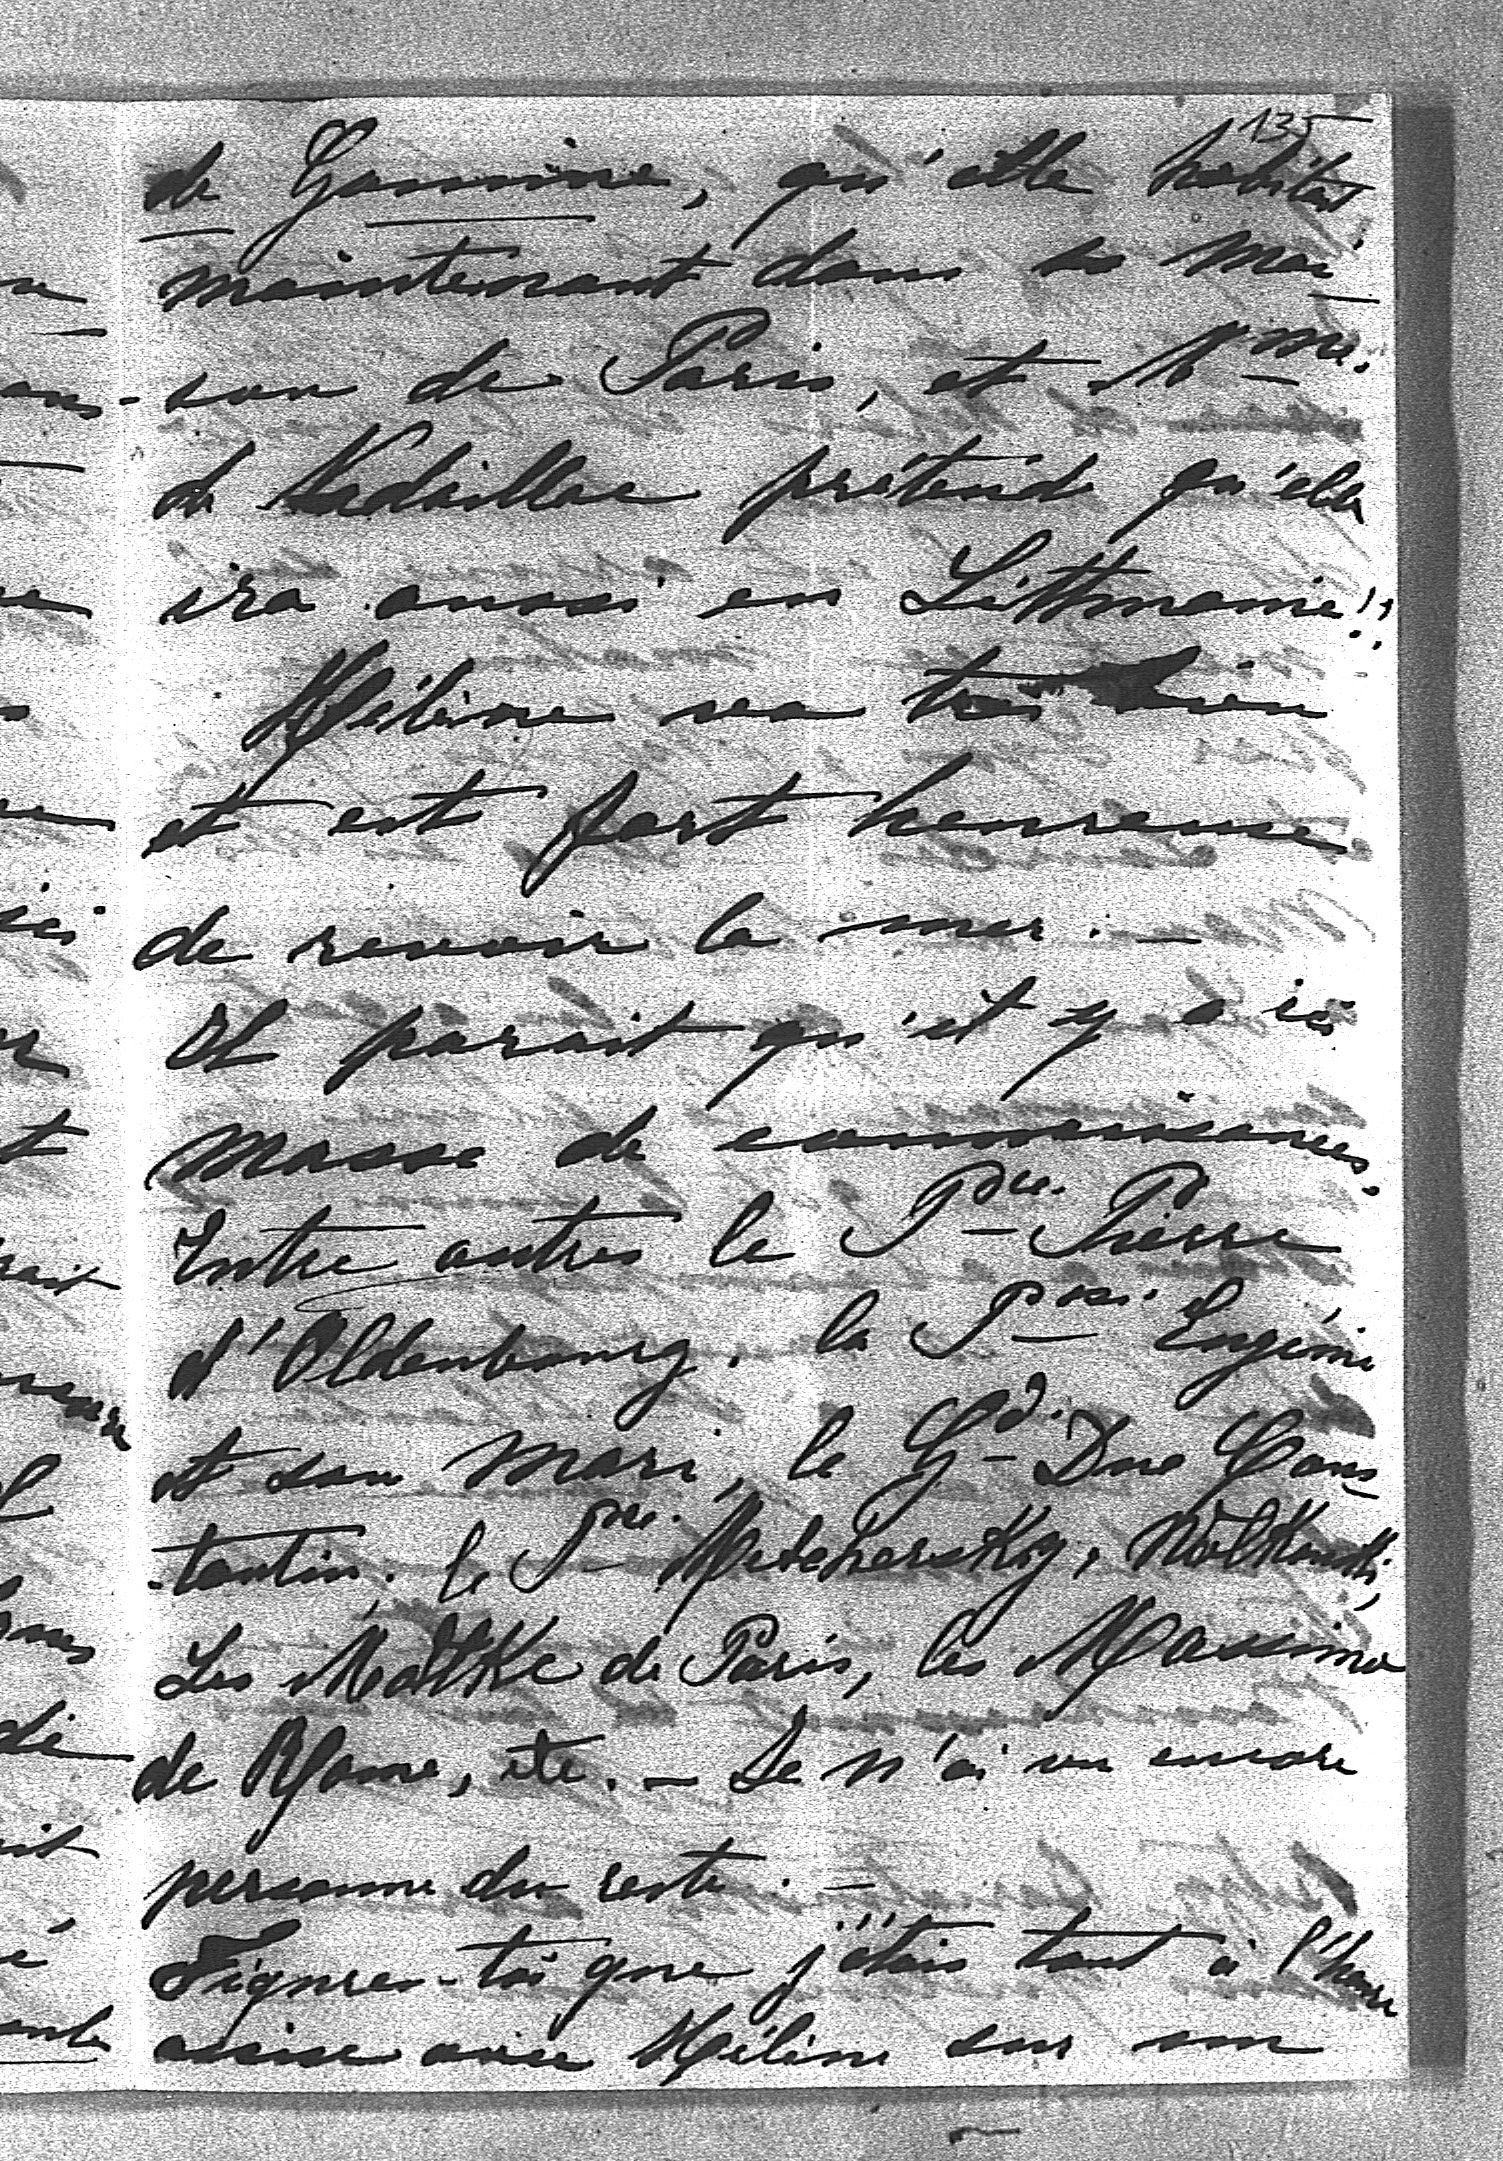 135
de Gamine, qu'elle habitait
maintenant dans sa mai-
-son de Paris, et Mme.
de Kedillac prétend qu'elle
ira aussi en Litthuanie!!
Hélène va très bien
et est fort heureuse
de revoir la mer. —
Il parait qu'il y a ici
masse de connaissances.
Entre autres le Pce. Pierre
d'Oldenbourg. la Psse. Eugénie
et son mari, le Gd. Duc Cons-
-tantin. le Pce. Metchersky,
Les Moltke de Paris, les Massimo
de Rome, etc. — Je n'ai vu encore
personne du reste. —
Figures-toi que j'étais tout à l'heure
assise avec Hélène sur un